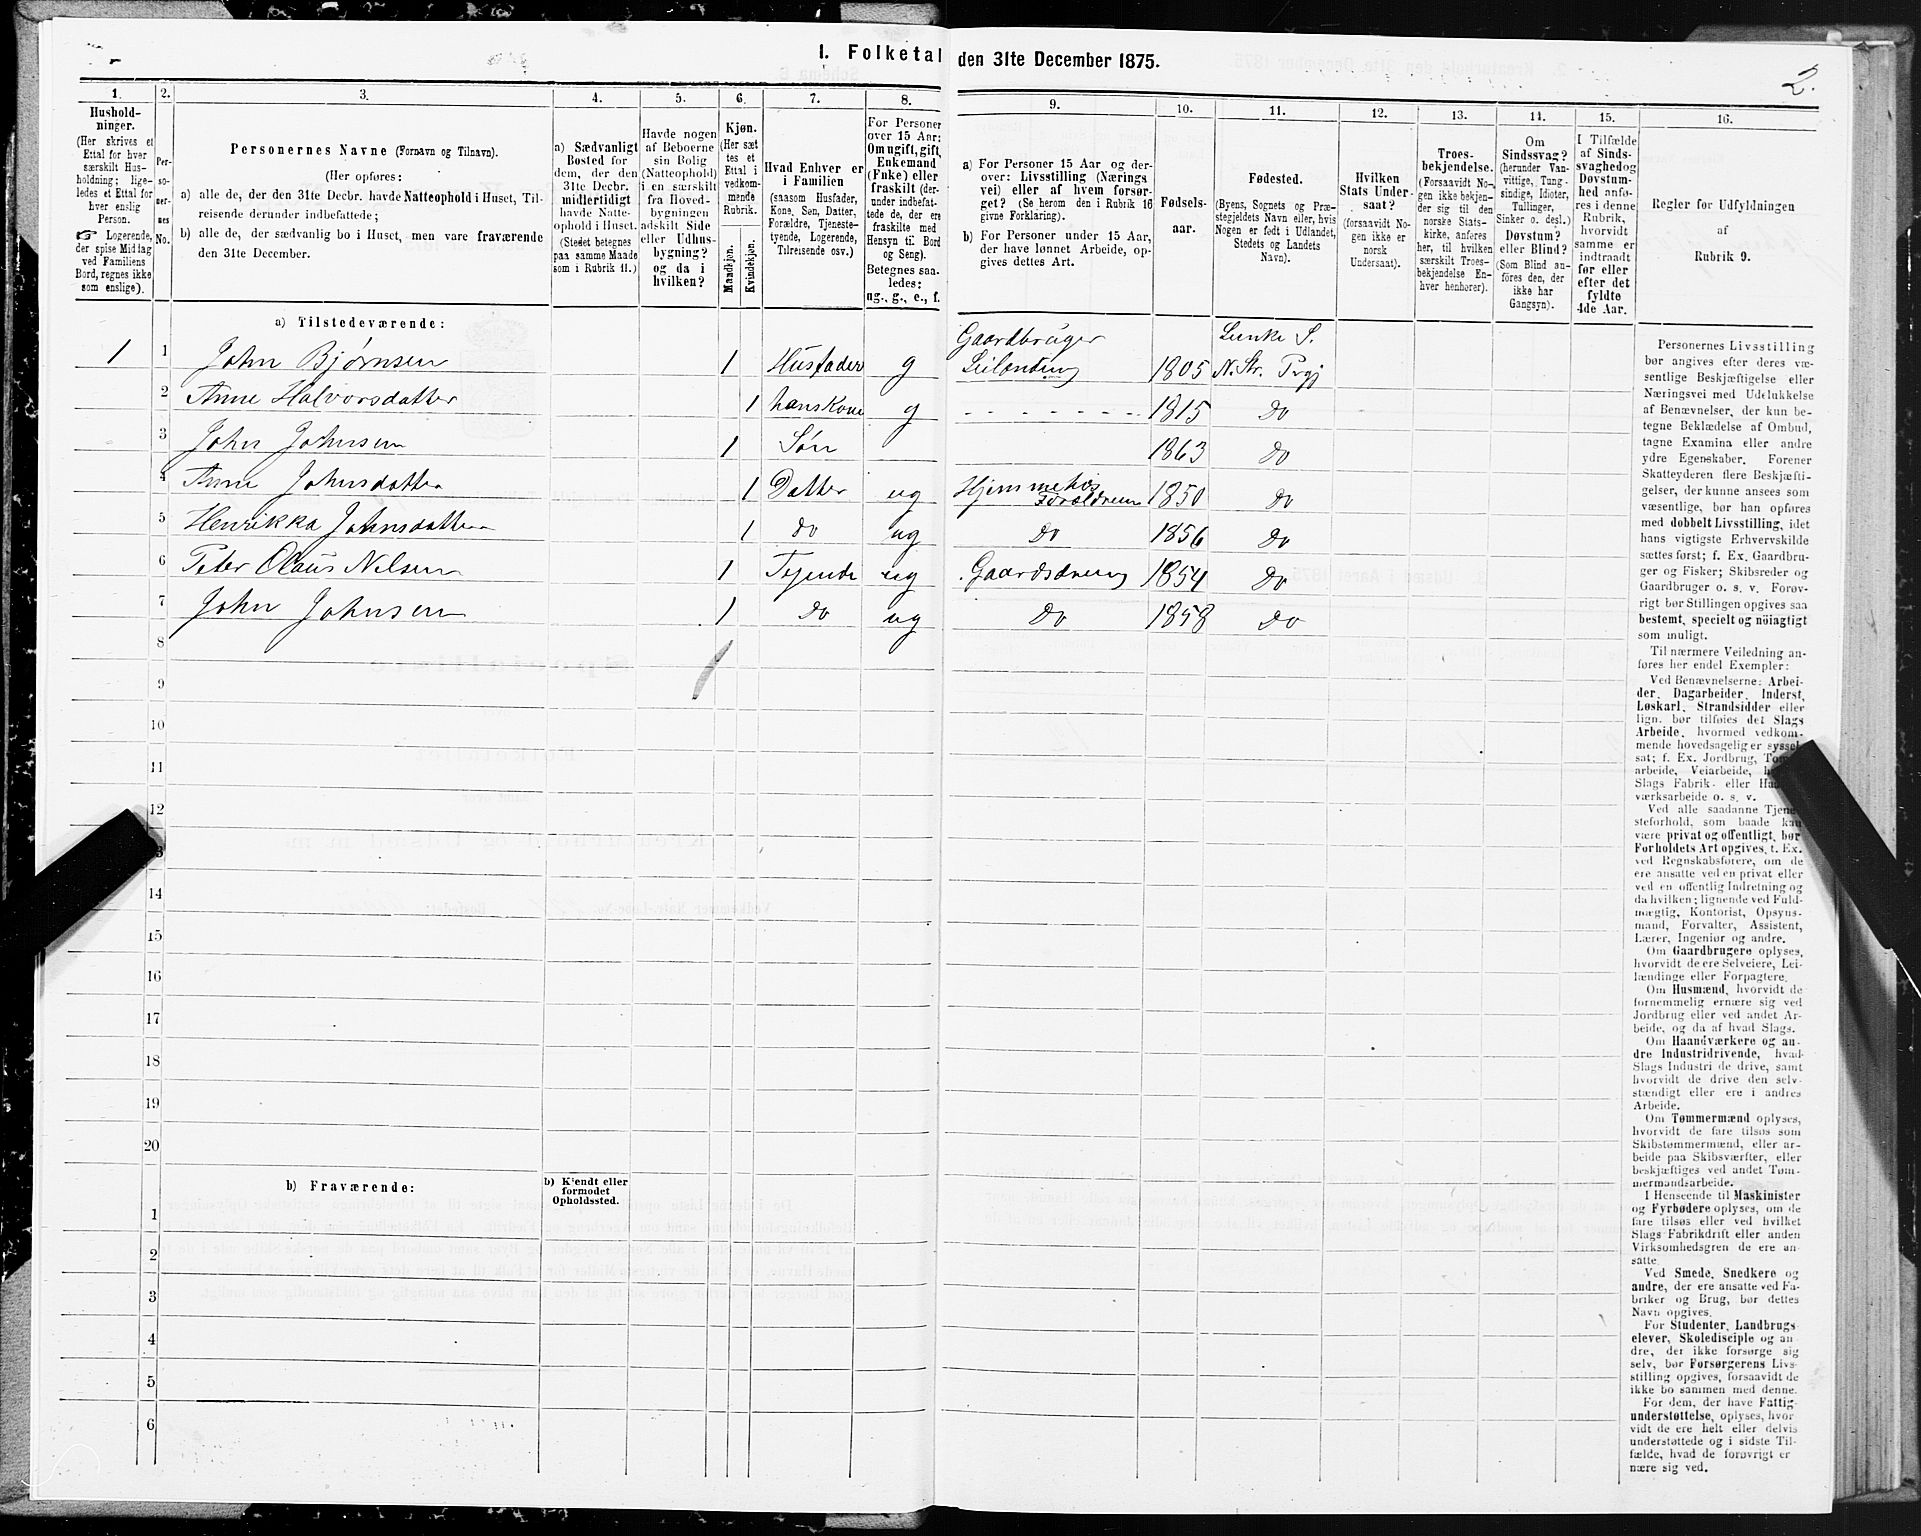 I. Folketal den 31te December 1875.
2.
1.
Hushold-
ninger.
(Her skrives et
Ettal for hver
særskilt Hus-
holdning; lige-
ledes et Ettal for
hver enslig
Person.
☞ Logerende,
der spise Middag
ved Familiens
Bord, regnes ikke
som enslige).
2.
Per-
so-
ner-
nes
No.
3.
Personernes Navne (Fornavn og Tilnavn).
(Her opføres:
a) alle de, der den 31te Decbr. havde Natteophold i Huset, Til-
reisende derunder indbefattede;
b) alle de, der sædvanlig bo i Huset, men vare fraværende
den 31te December.
4.
a) Sædvanligt
Bosted for
dem, der den
31te Decbr.
midlertidigt
havde Natte-
ophold i Huset.
(Stedet betegnes
paa samme Maade
som i Rubrik 11.)
5.
Havde nogen
af Beboerne
sin Bolig
(Natteophold)
i en særskilt
fra Hoved-
bygningen
adskilt Side
eller Udhus-
bygning?
og da i
hvilken?
6.
Kjøn.
(Her sæt
tes et
Ettal i
vedkom-
mende
Rubrik.
Mandkjøn.
Kvindekjøn.
7.
Hvad Enhver er
i Familien
(saasom Husfader,
Kone, Søn, Datter,
Forældre, Tjeneste-
tyende, Logerende,
Tilreisende osv.)
8.
For Personer
over 15 Aar:
Om ugift, gift,
Enkemand
(Enke) eller
fraskilt (der-
under indbefat-
tede de, der ere
fraskilte med
Hensyn til Bord
og Seng).
Betegnes saa-
ledes:
ug., g., e., f.
9.
a) For Personer 15 Aar og der-
over: Livsstilling (Nærings
vei) eller af hvem forsør-
get? (Se herom den i Rubrik 16
givne Forklaring).
b) For Personer under 15 Aar,
der have lønnet Arbeide, op-
gives dettes Art.
10.
Fødsels-
aar.
11.
Fødested.
(Byens, Sognets og Præ-
stegjeldets Navn eller, hvis
Nogen er født i Udlandet,
Stedets og Landets
Navn).
12.
Hvilken
Stats Under-
saat?
(forsaavidt No-
gen ikke er
norsk
Undersaat).
13.
Troes-
bekjendelse.
(Forsaavidt No-
gen ikke bekjen-
der sig til den
norske Stats-
kirke, anføres
her, til hvilken
særskilt Troes-
bekjendelse En-
hver henhører).
14.
Om
Sindssvag?
(herunder Van-
vittige, Tung-
sindige, Idioter,
Tullinger,
Sinker o. desl.)
Døvstum?
eller Blind?
(Som Blind an-
føres den, der
ikke har
Gangsyn).
15.
I Tilfælde
af Sinds-
svaghed og
Døvstum-
hed anfø-
res i denne
Rubrik,
hvorvidt
samme er
indtraadt
før eller
efter det
fyldte
4de Aar.
16.
Regler for Udfyldningen
af
Rubrik 9.
a) Tilstedeværende:
1 1 John Bjørnsen 1 Husfader g Gaardbruger Leilænding 1805 Lunke S. N. Str. Prgj
2 Anne Halvorsdatter 1 hans Kone g - - - - - - - - 1815 Do
3 John Johnsen 1 Søn 1863 Do
4 Anne Johnsdatter 1 Datter ug Hjemme hos Forældrene 1850 Do
5 Henrikka Johnsdatter 1 do ug Do 1856 Do
6 Peter Olaus Nilsen 1 Tjende ug Gaardsdreng 1854 Do
7 John Johnsen 1 Do ug Do 1858 Do
8
9
10
11
12
14
15
16
17
18
19
20
b) Fraværende:
b) Kjendt eller
formodet
Opholdssted.
1
2
3
4
5
6
Personernes Livsstilling
bør angives efter deres væ-
sentlige Beskjæftigelse eller
Næringsvei med Udelukkelse
af Benævnelser, der kun be-
tegne Beklædelse af Ombud,
tagne Examina eller andre
ydre Egenskaber. Forener
Skatteyderen flere Beskjæfti-
gelser, der kunne ansees som
væsentlige, bør han opføres
med dobbelt Livsstilling, idet
hans vigtigste Erhvervskilde
sættes først; f. Ex. Gaardbru-
ger og Fisker; Skibsreder og
Gaardbruger o. s. v. Forøv-
rigt bør Stillingen opgives saa
bestemt, specielt og nöiagtigt
som muligt.
Til nærmere Veiledning an-
føres her endel Exempler:
Ved Benævnelserne: Arbei-
der, Dagarbeider, Inderst,
Løskarl, Strandsidder eller
lign. bør tilføies det Slags
Arbeide, hvormed vedkom-
mende hovedsagelig er syssel-
sat; f. Ex. Jordbrug,
arbeide, Veiarbeide,
Slags Fabrik- eller
værksarbeide o. s. v.
Ved alle saadanne Tjene-
steforhold, som baade kan
være privat og offentligt, bør
Forholdets Art opgives, f. Ex.
ved Regnskabsførere, om de
ere ansatte ved en privat eller
ved en offentlig Indretning og
da hvilken; lignende ved Fuld-
mægtig, Kontorist, Opsyns-
mand, Forvalter, Assistent,
Lærer, Ingeniør og andre.
Om Gaardbrugere oplyses,
hvorvidt de ere Selveiere, Lei-
lændinge eller Forpagtere.
Om Husmænd, hvorvidt de
fornemmelig ernære sig ved
Jordbrug eller ved andet Ar-
beide, og da af hvad Slags.
Om Haandværkere og an-
dre Industridrivende, hvad
Slags Industri de drive, samt
hvorvidt de drive den selv-
stændigt eller ere i andres
Arbeide.
Om Tømmermænd oplyses,
hvorvidt de fare tilsøs som
Skibstømmermænd, eller ar-
beide paa Skibsværfter, eller
beskjæftiges ved andet Tøm-
mermandsarbeide.
I Henseende til Maskinister
og Fyrbødere oplyses, om de
fare tilsøs eller ved hvilket
Slags Fabrikdrift eller anden
Virksomhedsgren de ere an-
satte.
Ved Smede, Snedkere og
andre, der ere ansatte ved Fa-
briker og Brug, bør dettes
Navn opgives.
For Studenter, Landbrugs-
elever, Skoledisciple og an
dre, der ikke forsørge sig
selv, bør Forsørgerens Livs-
stilling opgives, forsaavidt de
ikke bo sammen med denne.
For dem, der have Fattig-
understøttelse, oplyses, hvor
vidt de ere helt eller delvis
understøttede og i sidste Til-
fælde, hvad de forøvrigt er
nære sig ved.